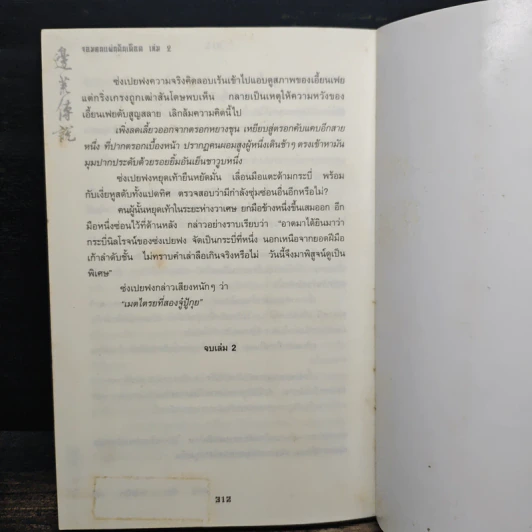 จอมตบะแย่งอิทธิพล เล่ม 2
ซ่งเปยฟงความจริงคิดลอบเร้นเข้าไปแอบดูสภาพของเอี้ยนเฟย
แต่กริ่งเกรงถูกเฒ่าสันโดษพบเห็น กลายเป็นเหตุให้ความหวังของ
เอี้ยนเฟยดับสูญสลาย เลิกล้มความคิดนี้ไป
เพิ่งลดเลี้ยวออกจากตรอกหยางชุน เหยียบสู่ตรอกคับแคบอีกสาย
หนึ่ง ที่ปากตรอกเบื้องหน้า ปรากฏคนผอมสูงผู้หนึ่งเดินช้าๆ ตรงเข้าหามัน
มุมปากประดับด้วยรอยยิ้มอันเย็นชาวูบหนึ่ง
ซ่งเปยฟงหยุดเท้ายืนหยัดมั่น เลื่อนมือแตะด้ามกระบี่ พร้อม
กับเงี่ยหูสดับทั้งแปดทิศ ตรวจสอบว่ามีกำลังซุ่มซ่อนอื่นอีกหรือไม่?
คนผู้นั้นหยุดเท้าในระยะห่างวาเศษ ยกมือข้างหนึ่งขึ้นเสมออก อีก
มือหนึ่งซ่อนไว้ที่ด้านหลัง กล่าวอย่างราบเรียบว่า "อาตมาได้ยินมาว่า
กระบี่นิลโรจน์ของซ่งเปยฟง จัดเป็นกระบี่ที่หนึ่ง นอกเหนือจากยอดฝีมือ
เก้าลำดับชั้น ไม่ทราบคำเล่าลือเกินจริงหรือไม่ วันนี้จึงมาพิสูจน์ดูเป็น
พิเศษ"
ซ่งเปยฟงกล่าวเสียงหนักๆ ว่า
"เมตไตรยที่สองจู๋ปู๊กุย"
จบเล่ม 2
312